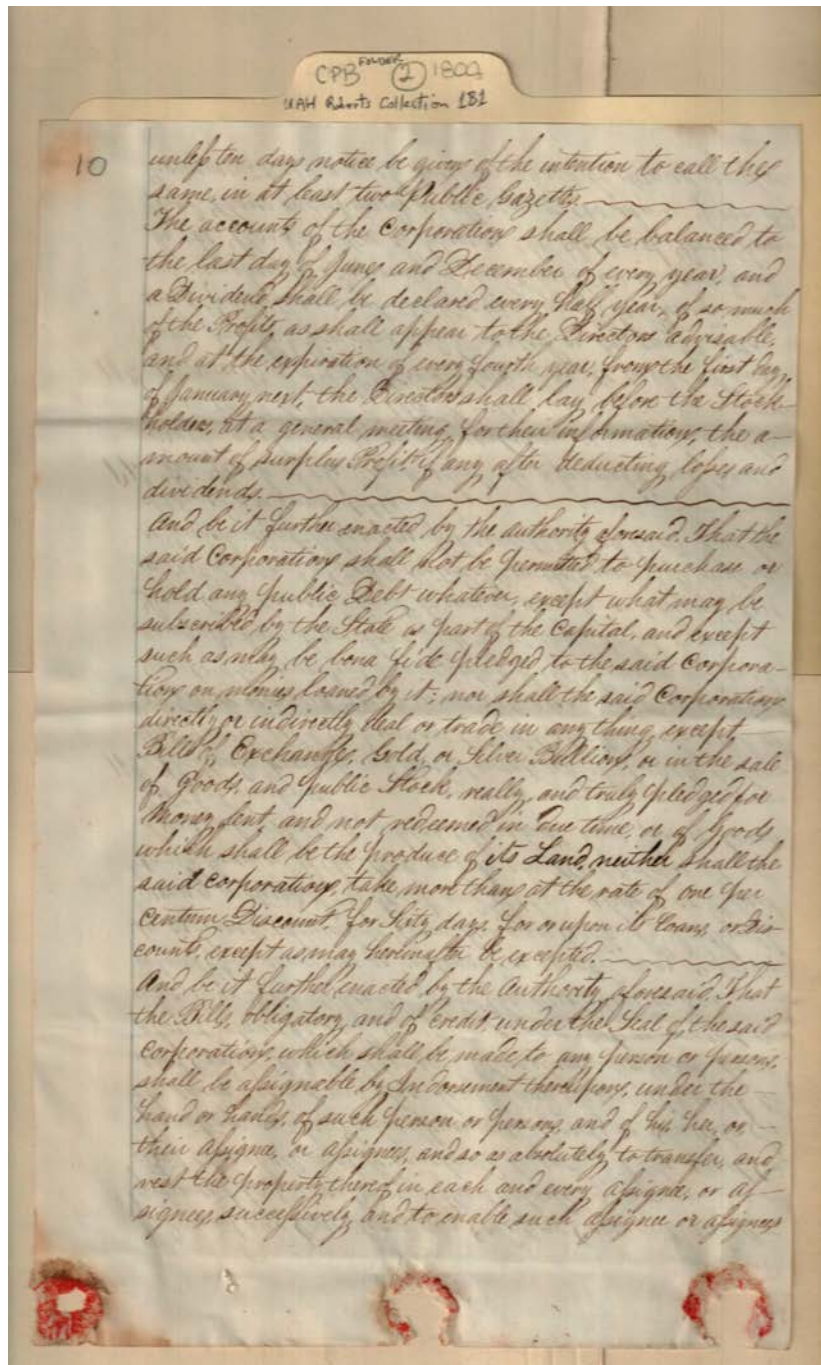 CPB FOLDER 2 1802
UAH Roberts Collection 181
10
unless ten days notice be given of the intention to call the
same, in at least two Public Gazetts.
The accounts of the Corporation shall be balanced to
the last day of June, and December of every year, and
a Dividend, shall be declared every half year, of so much
of the Profits, as shall appear to the Directors advisable,
and at the expiration of every fourth year, from the first day
of January next, the Directors shall lay before the Stock-
holders, at a general meeting, for their information, the a-
mount of surplus Profit, if any after deducting losses and
dividends.
And be it further enacted by the authority aforesaid, That the
said Corporation shall not be permitted to purchase or
hold any public Debt whatever, except what may be
subscribed by the State as part of the Capital, and except
such as may be bona fide pledged to the said Corpora-
tion on monies loaned by it; nor shall the said Corporation
directly or indirectly deal or trade in any thing, except,
Bills of Exchange, Gold, or Silver Bullion, or in the sale
of Goods, and public Stock, really, and truly pledged for
Money lent, and not redeemed in due time, or of Goods
which shall be the produce of its Land, neither shall the
said corporation, take more than at the rate of one per
centum Discount, for Sixty days, for or upon its Loans, or Dis-
counts, except as may hereinafter be excepted.
And be it further enacted by the Authority aforesaid, That
the Bills, obligatory, and of credit, under the Seal of the said
corporation, which shall be made to any person or persons,
shall be assignable by Indorsement thereupon, under the
hand or hands, of such person or persons, and of his, her, or
their assignee, or assignees, and so as absolutely to transfer, and
vest the property thereof in each and every assignee, or as-
signees, successively, and to enable such assignee or assignees